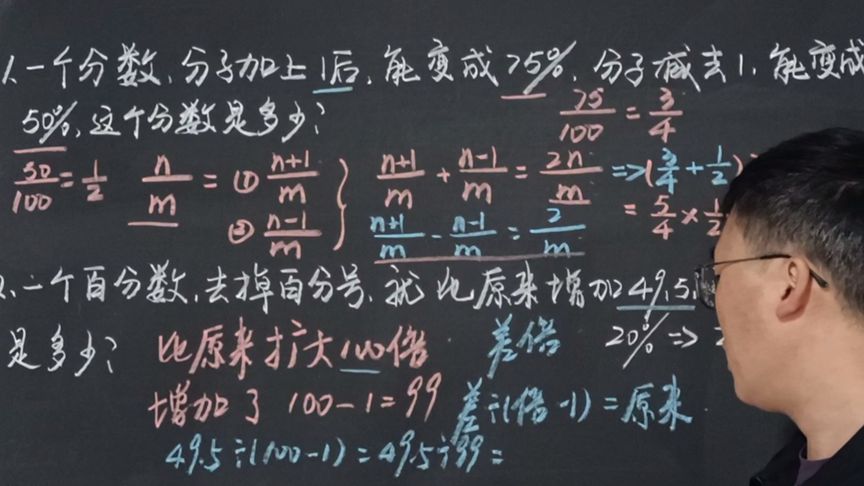 1.一个分数,分子加上1后,能变成75%,分子减去1,能变成
50%,这个分数是多少?
75/100 = 3/4
50/100 = 1/2
n/m = ① (n+1)/m
② (n-1)/m }
(n+1)/m + (n-1)/m = 2n/m => (3/4 + 1/2)
(n+1)/m - (n-1)/m = 2/m
= 5/4 × 1/2
2.一个百分数,去掉百分号,就比原来增加49.5,
是多少?
20% =>
比原来扩大100倍
差倍
增加了 100-1=99
差÷(倍-1)=原来
49.5÷(100-1)=49.5÷99=